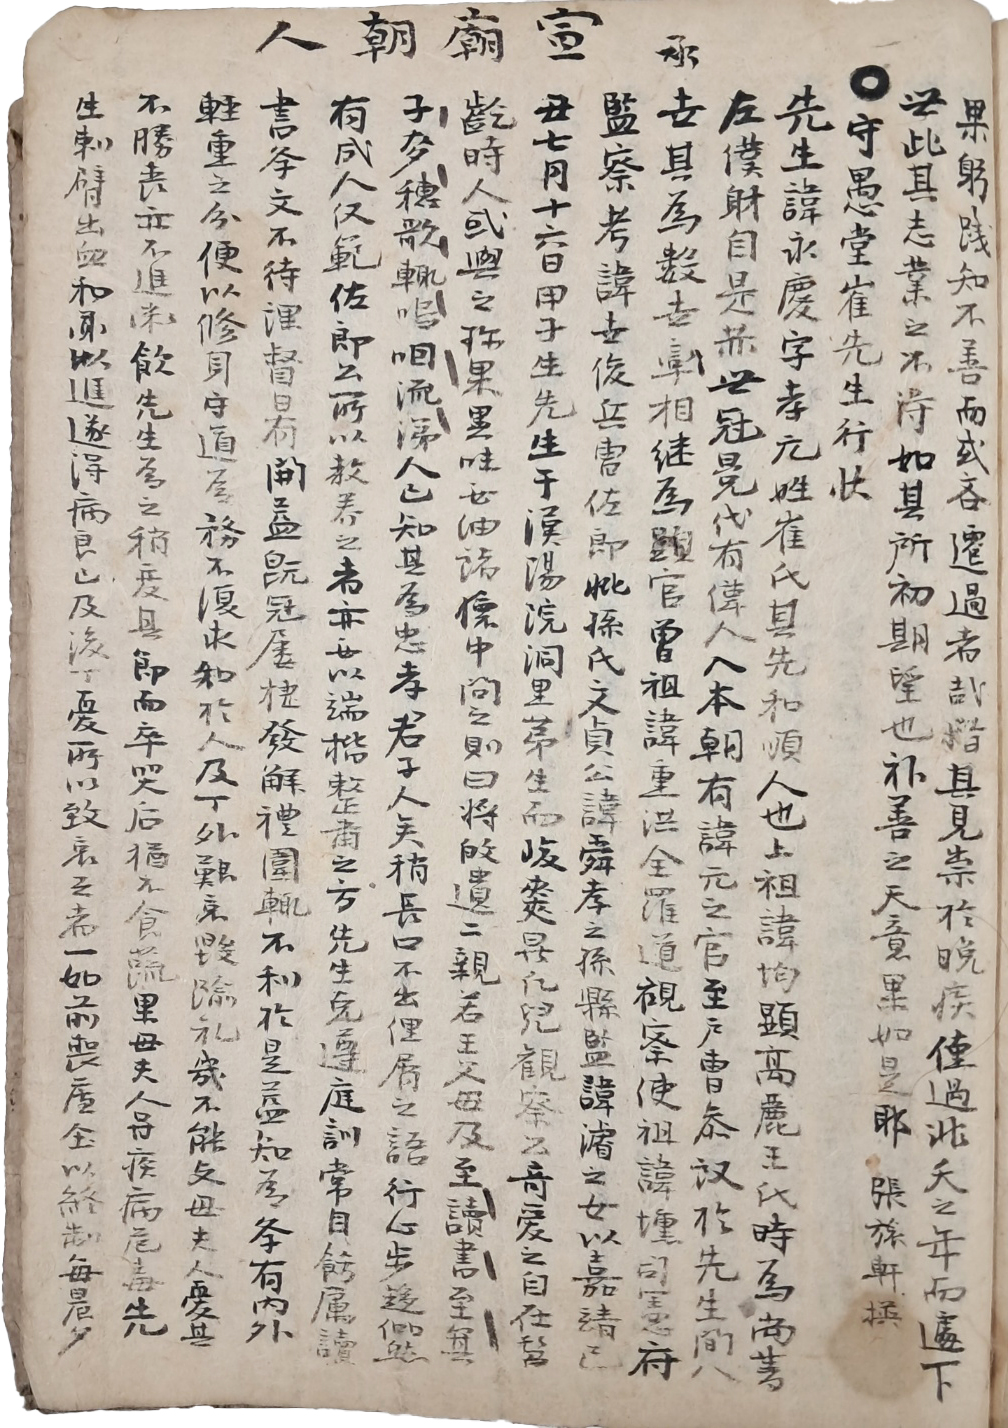 宣廟朝人
承
果躬践知不善而或吝遷過者哉惜其見崇於晚疾僅過非夭之年而遽下
世此其志業之不得如其所初期望也补善之天意果如是耶 張旅軒撰
守愚堂崔先生行狀
先生諱永慶字孝元姓崔氏其先和順人也上祖諱均顯高麗王氏時為尚書
左僕射自是赤世冠冕代有偉人入本朝有諱元之官至戶曹叅议於先生間八
世其為數世章相継為顯官曾祖諱重洪全羅道観察使祖諱壎司憲府
監察考諱世俊兵曹佐郎妣孫氏文貞公諱舜孝之孫縣監諱濬之女以嘉靖己
丑七月十六日甲子生先生于漢陽浣洞里苐生而岐嶷異凡兒観察公奇爱之自在髫
齔時人或與之珍果置啀不油諸懷中問之則曰將欲遺二親若王父母及至讀書至其
子多穗歌輒嗚咽流涕人已知其為忠孝君子人矣稍長口不出俚屑之語行心步趍儼然
有成人仪範佐郎公所以教养之者亦必以端楷整肅之方先生克遵庭訓常自飭属讀
書夆文不待浬督日有開益既冠屡捷發解禮圍輒不利於是益知為夆有内外
輕重之分便以修身守道為務不復求知於人及丁外艱哀毁隃礼歲不能支母夫人憂其
不勝丧亦不進米飲先生為之稍度其節而卒哭后猶不食蔬果母夫人甞疾病危毒先
生刺臂出血和药以進遂得病良已及後丁憂所以致哀之者一如前喪庐仝以終制每晨夕